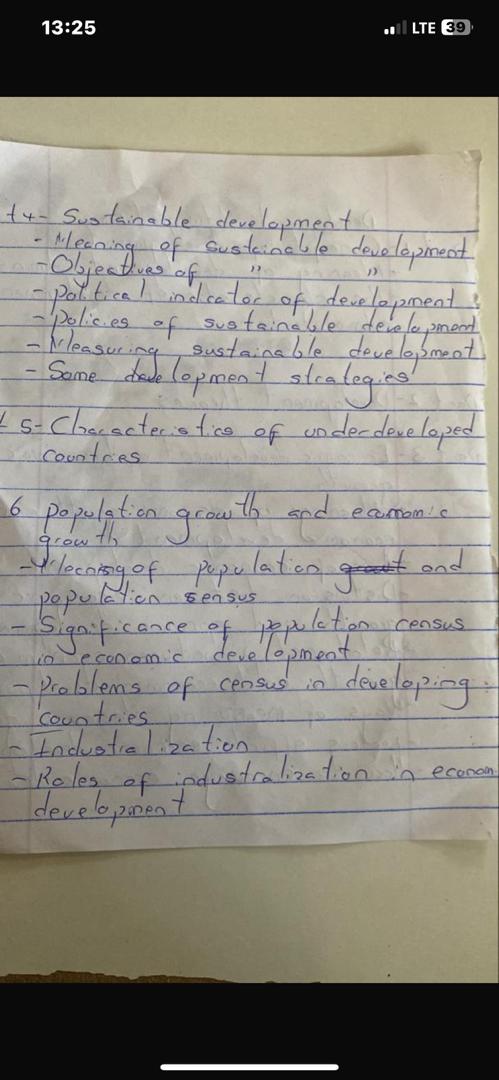 13:25
LTE 39
t 4- Sustainable development
- Meaning of sustainable development
- Objectives of " "
- political indcator of development
- policies of sustainable development
- Measuring sustainable development
- Some development strategies
t 5- Characteristics of underdeveloped
countries
6 population growth and economic
growth
- Meaning of population and
population sensus
- Significance of population census
in economic development
- Problems of census in developing
countries
- Industralization
- Roles of industralization in econom
development